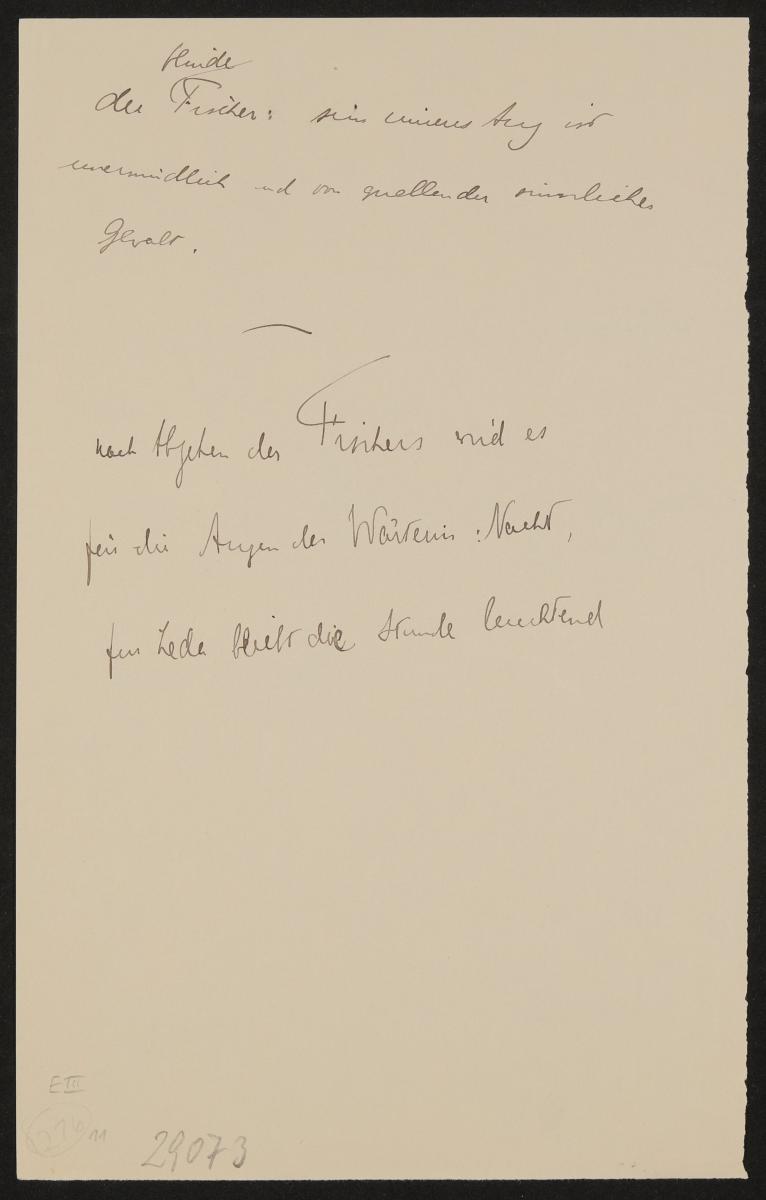 blinde
der Fischer: sein inneres Aug ist
unermüdlich und von quellender sinnlicher
Gewalt.
nach Abgehen des Fischers wird es
für die Augen der Wärterin: Nacht,
für Leda bleibt die Stunde leuchtend
E III
216 11
29073